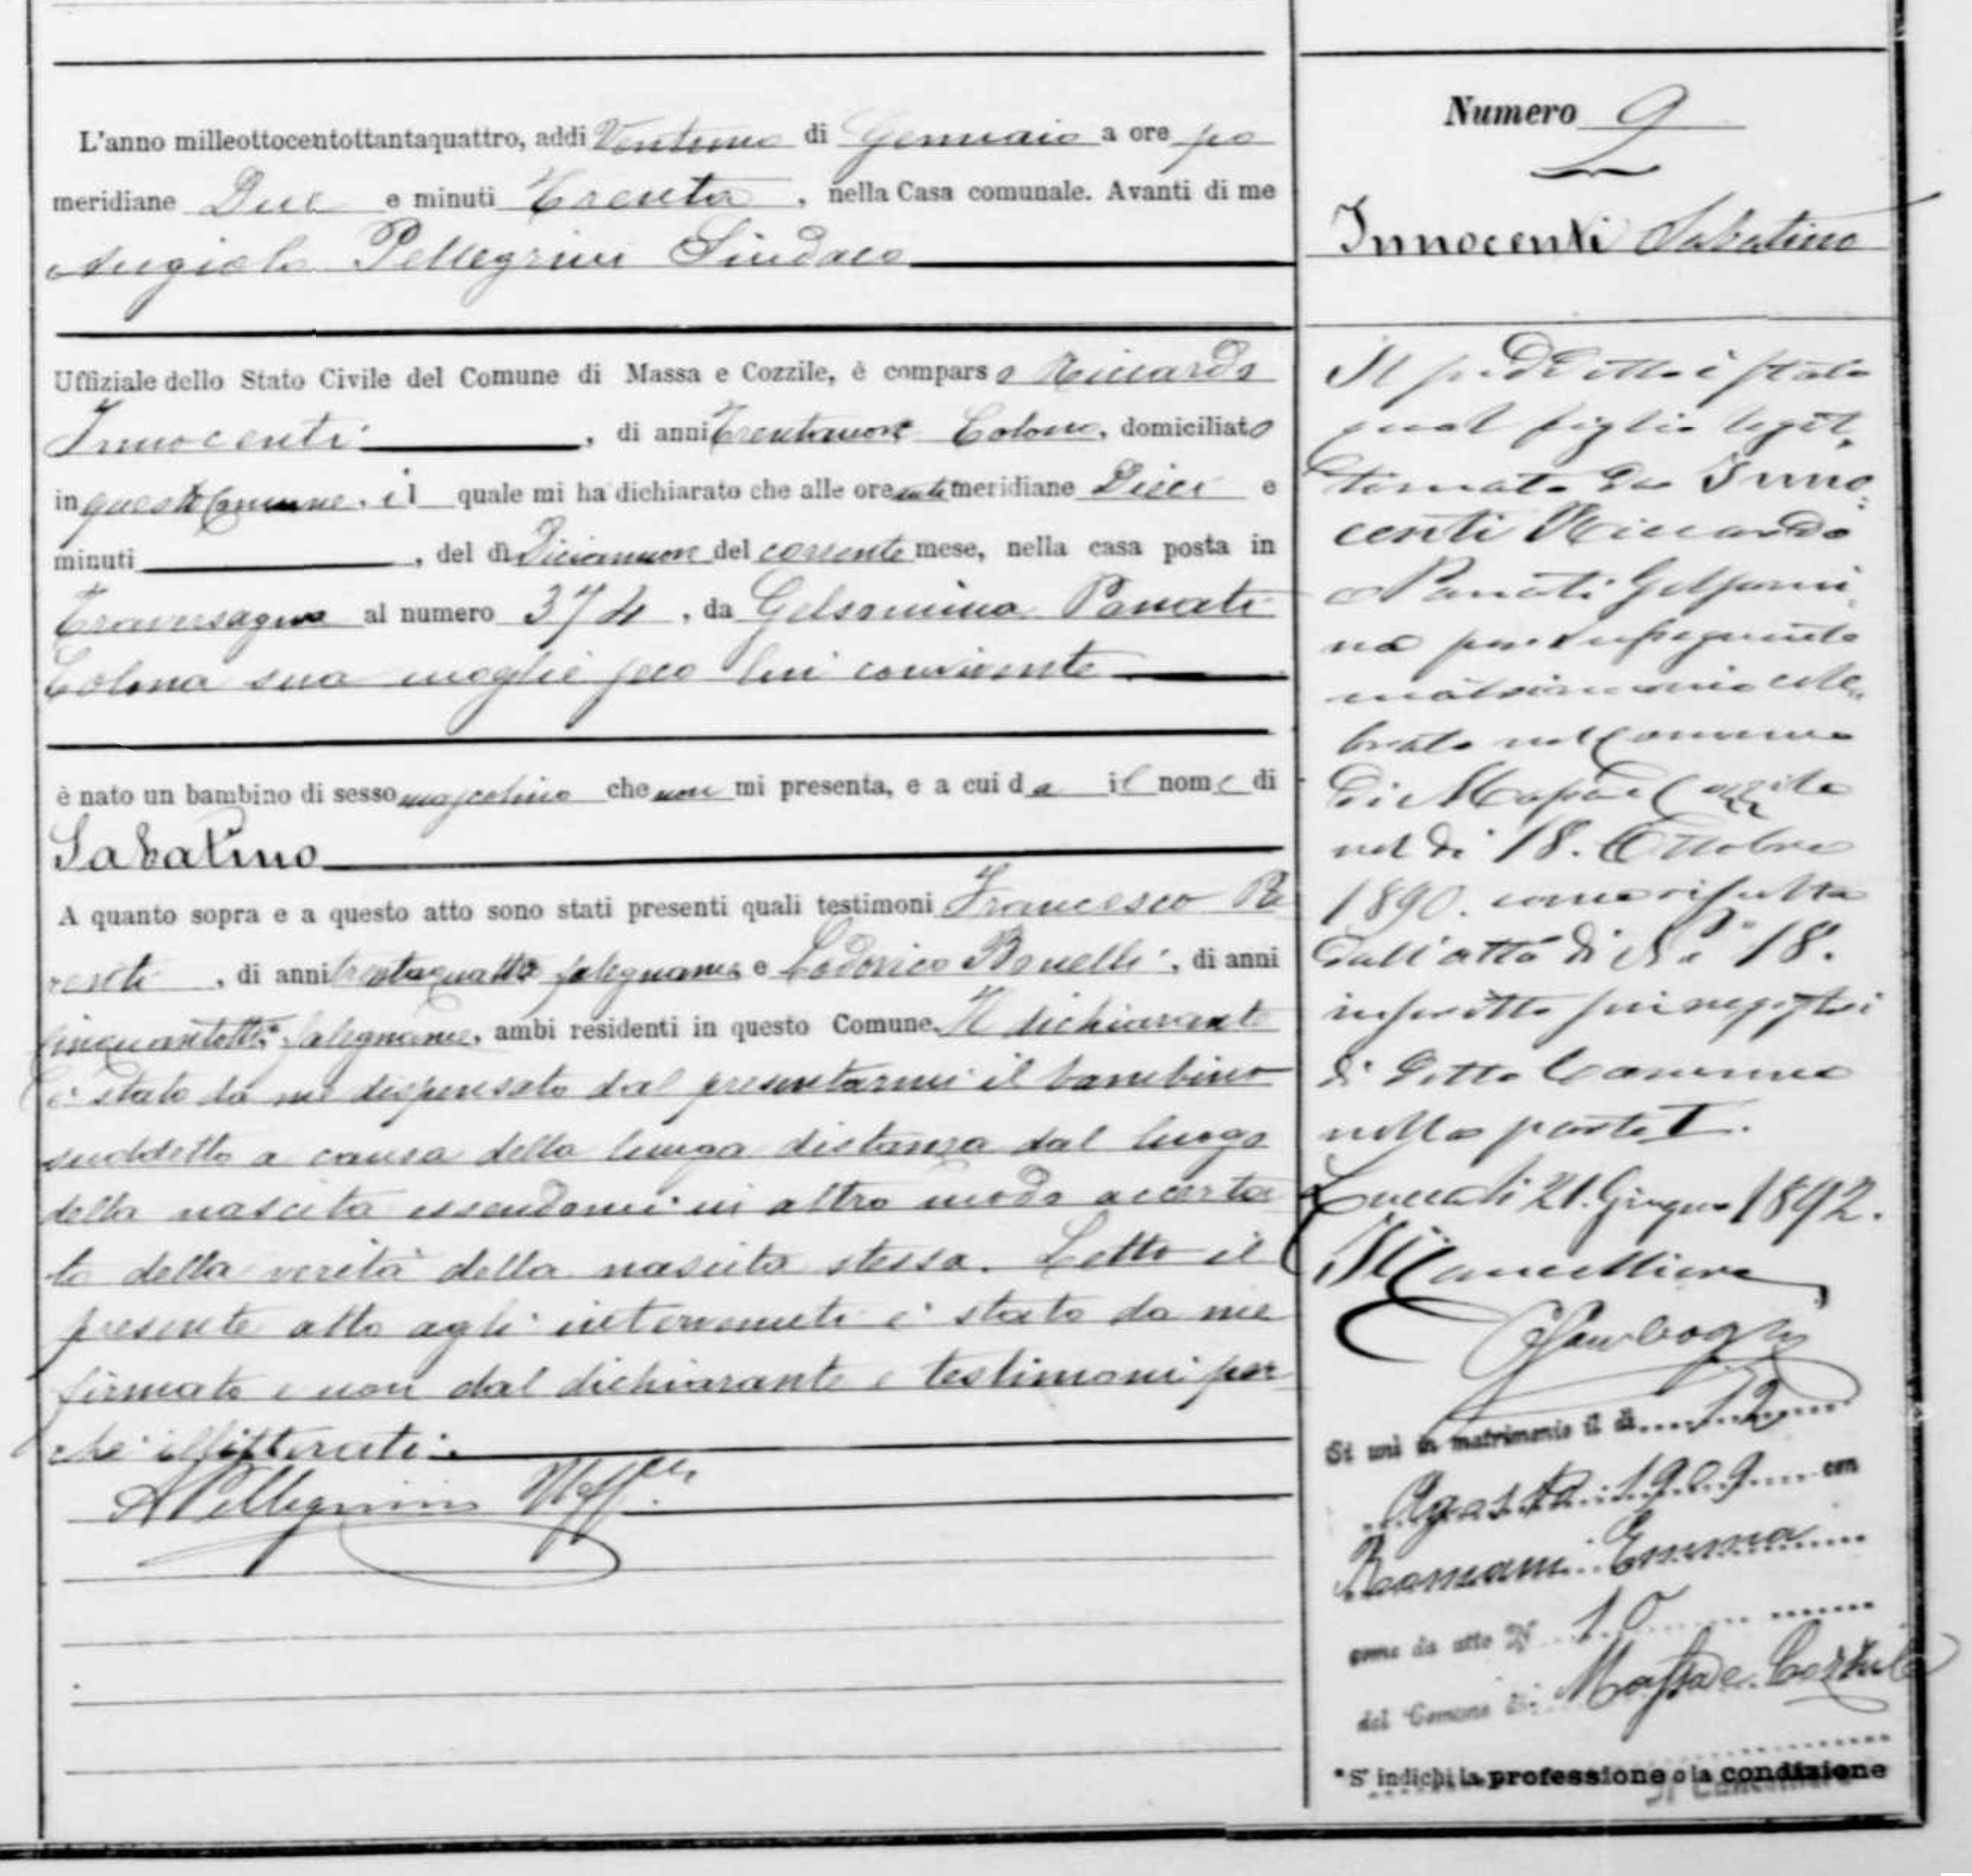 L'anno milleottocentottantaquattro, addì Ventuno di Gennaio a ore po
meridiane Due e minuti Trenta, nella Casa comunale. Avanti di me
Angiolo Pellegrini Sindaco
Uffiziale dello Stato Civile del Comune di Massa e Cozzile, è comparso Riccardo
Innocenti, di anni trentanove Colono, domiciliato
in questo Comune, il quale mi ha dichiarato che alle ore antemeridiane Dieci e
minuti, del dì Diciannove del corrente mese, nella casa posta in
Traversagna al numero 374, da Gelsomina Panati
Colona sua moglie seco lui convivente
è nato un bambino di sesso mascolino che non mi presenta, e a cui da il nome di
Sabatino
A quanto sopra e a questo atto sono stati presenti quali testimoni Francesco
, di anni trentaquattro falegname e Lodovico Bonelli, di anni
cinquantotto, falegname, ambi residenti in questo Comune. Il dichiarante
è stato da me dispensato dal presentarmi il bambino
suddetto a causa della lunga distanza dal luogo
della nascita essendomi in altro modo accerta
to della verità della nascita stessa. Letto il
presente atto agli intervenuti è stato da me
firmato e non dal dichiarante e testimoni per
chè illitterati.
A Pellegrini Uffle
Numero 9
Innocenti Sabatino
Il suddetto è stato
qual figlio legit,
timato da Inno,
centi Riccardo
e Panati Gelsomi,
na per susseguente
matrimonio cele,
brato nel Comune
di Massa e Cozzile
nel dì 18. Ottobre
1890. come risulta
dall'atto di No 18.
inscritto sui registri
di detto Comune
nella parte I.
Lucca li 21. Giugno 1892.
Il Cancelliere
Si unì in matrimonio il dì 12
Agosto 1909 con
Romani Emma
come da atto N 10
del Comune di Massa e Cozzile
*S' indichi la professione o la condizione
Il Cancelliere